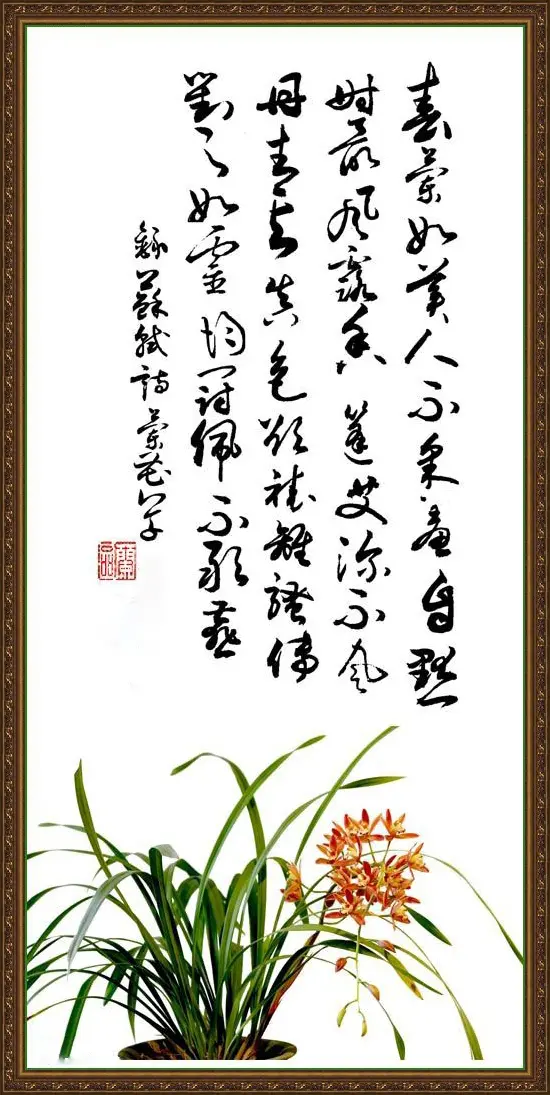 春蘭如美人不采羞自獻
時聞風露香蓬艾深不見
丹青寫真色欲補離騷傳
對之如靈均冠佩不敢燕
錄蘇軾詩蘭花